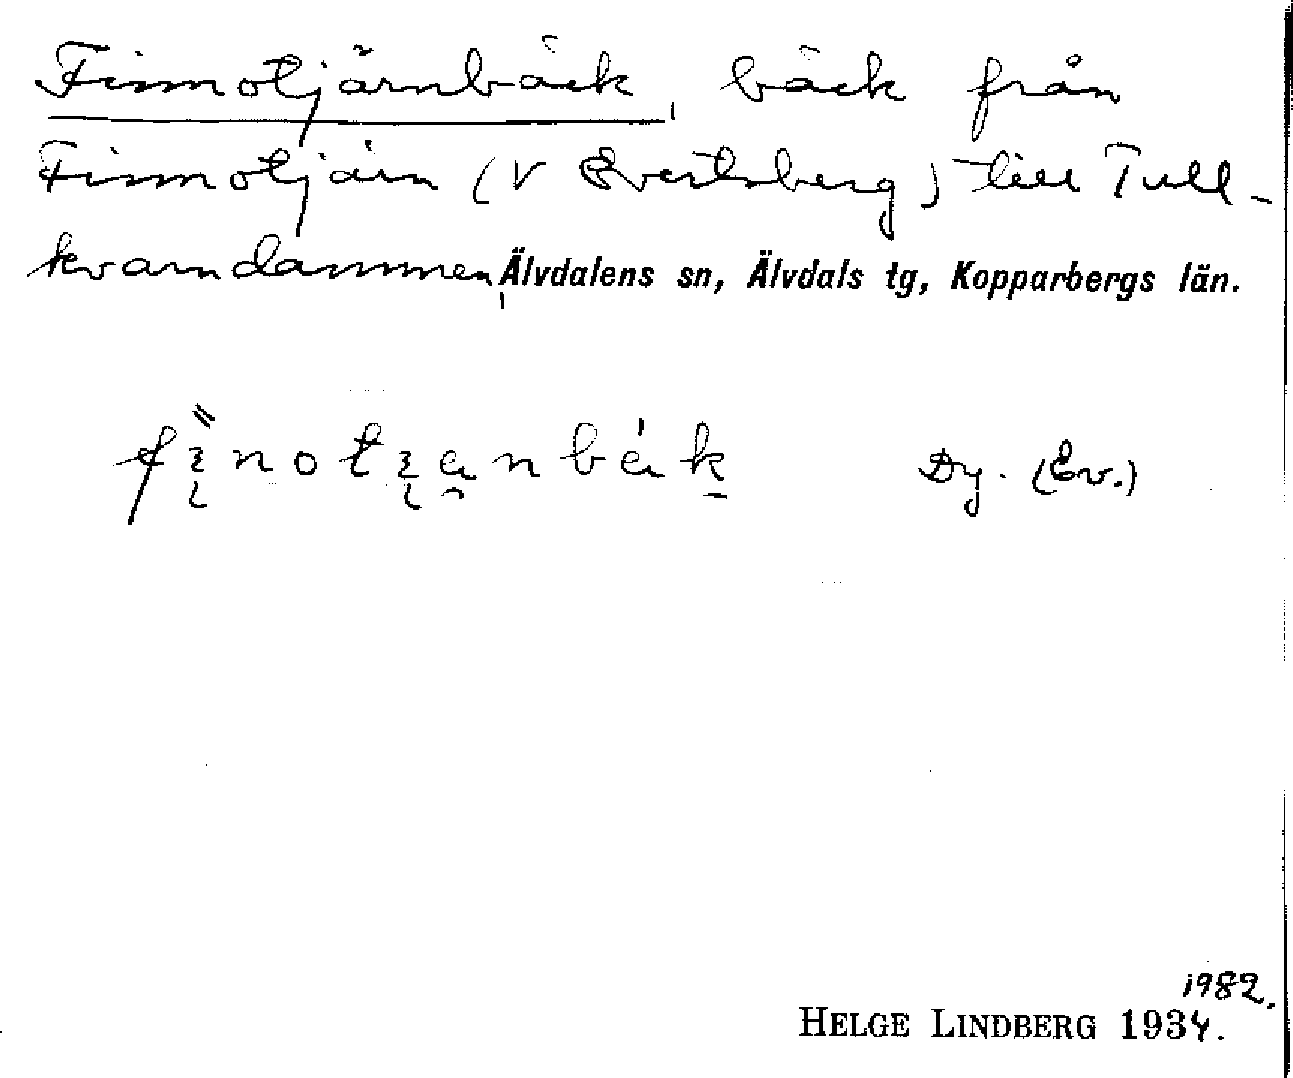 Finnotjärnbäck, bäck från
Finnotjärn (V Evertsberg) till Tull-
kvarndammen, Älvdalens sn, Älvdals tg, Kopparbergs län.
Dy. (Ev.)
1982.
HELGE LINDBERG 1934.